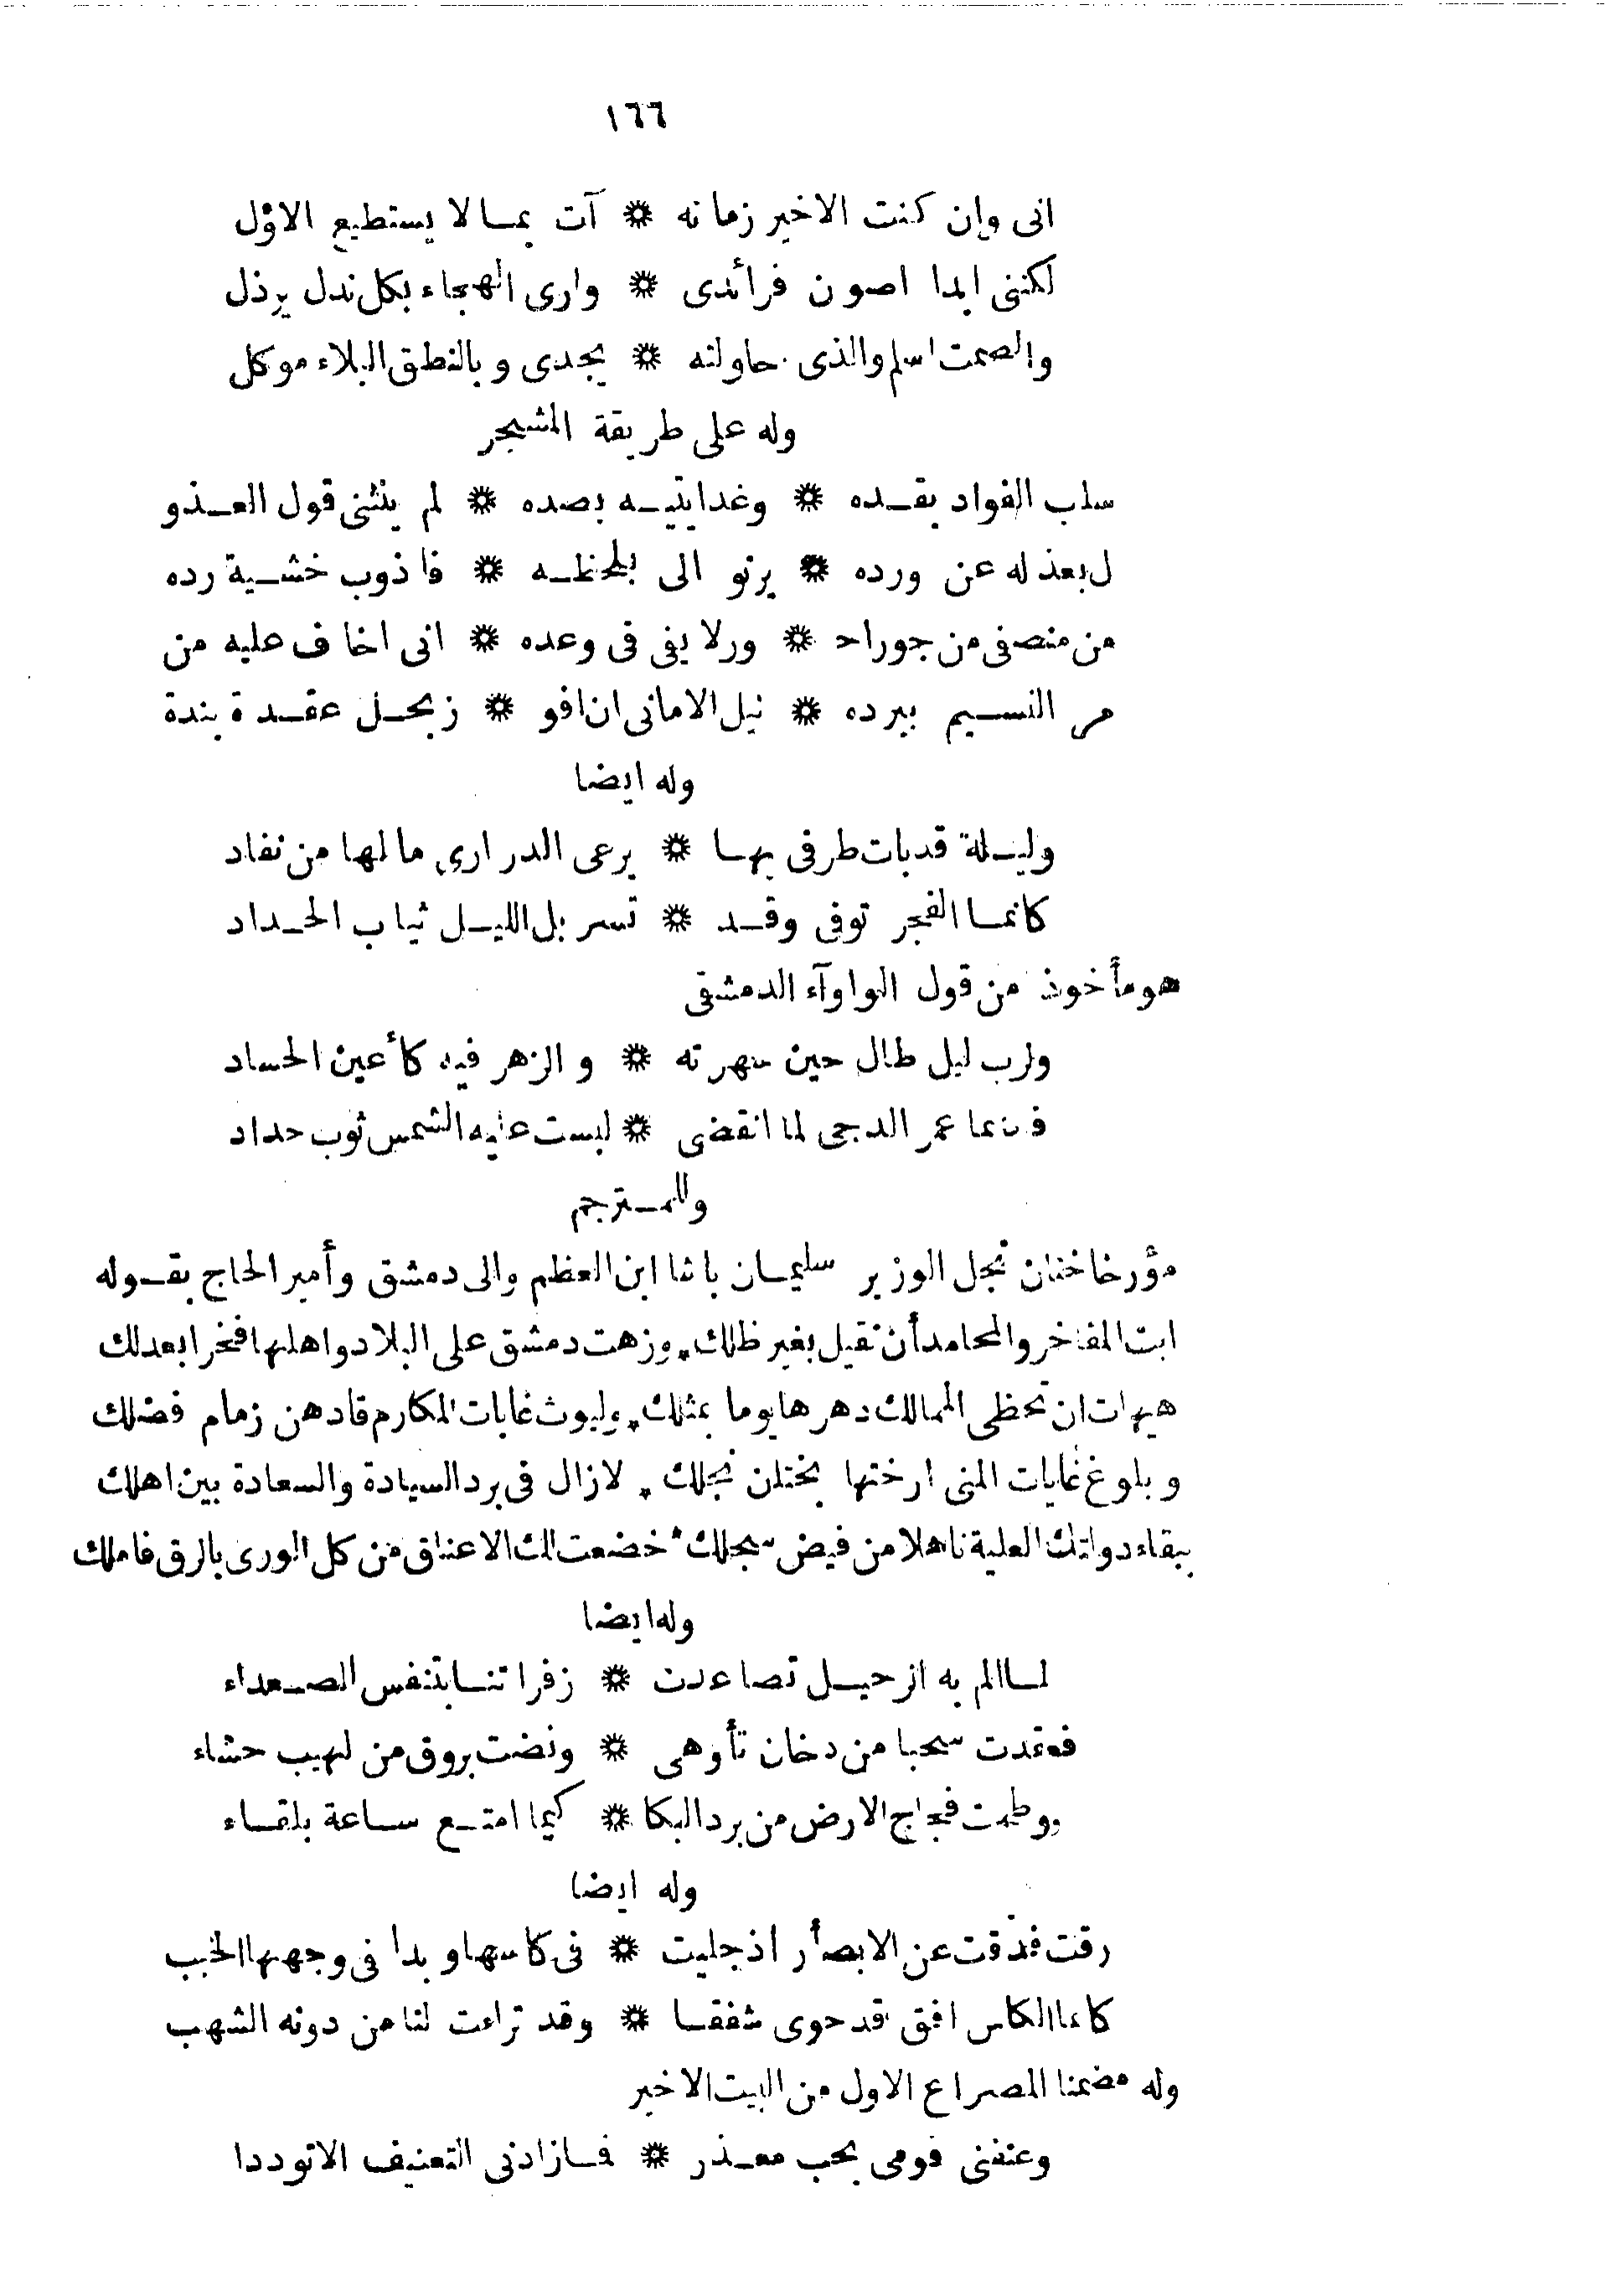 ١٦٦
انى وإن كنت الاخير زمانه * آت بمـا لا يستطيع الاوّل
لكننى ابدا اصون فرائدى * وارى الهجاء بكل ندل يرذل
والصمت اسلم والذى حاولته * يجدى وبالنطق البلاء موكل
وله على طريقة المشجر
سلب الفواد بقـده * وغدا يتيـه بصده * لم يثننى قول العـذو
ل بعذله عن ورده * يرنو الى بلحظـه * فاذوب خشـية رده
من منصفى من جوراحـ * ورلا يفى فى وعده * انى اخاف عليه من
مر النسـيم ببرده * نيل الامانى ان افو * ز بحـل عقـدة بندة
وله ايضا
وليـلة قدبات طرفى بهـا * يرعى الدرارى مالها من نفاد
كانمـا الفجر توفى وقـد * تسربل الليـل ثياب الحـداد
هو مأخوذ من قول الواوآء الدمشقى
ولرب ليل طال حين سهرته * والزهر فيه كأعين الحساد
فكانما عمر الدجى لما انقضى * لبست عليه الشمس ثوب حداد
وللمـترجم
مؤرخا ختان نجل الوزير سليمـان باشا ابن العظم والى دمشق وأمير الحاج بقـوله
ابت المفاخر والمحامد أن تقيل بغير ظلك * وزهت دمشق على البلاد واهلها فخرا بعدلك
هيهات ان تحظى الممالك دهرها يوما بمثلك * وليوث غابات المكارم قادهن زمام فضلك
وبلوغ غايات المنى ارختها بختان نجلك * لازال فى برد السيادة والسعادة بين اهلك
ببقاء دولتك العلية ناهلا من فيض سجلك * خضعت لك الاعناق من كل الورى بالرق فاملك
وله ايضا
لمـا الم به الرحيـل تصاعدت * زفراتنـا بتنفس الصـعداء
فعقدت سحبا من دخان تأوهى * ونضت بروق من لهيب حشاء
وطمت فجاج الارض من برد البكا * كيما امتـع سـاعة بلقـاء
وله ايضا
رقت فدقت عن الابصار اذ جليت * فى كاسها وبدا فى وجهها الحبب
كانما الكاس افق قد حوى شفقـا * وقد تراءت لنا من دونه الشهب
وله مضمنا المصراع الاول من البيت الاخير
وعنفنى قومى بحب معـذر * فـازادنى التعنيف الاتوددا